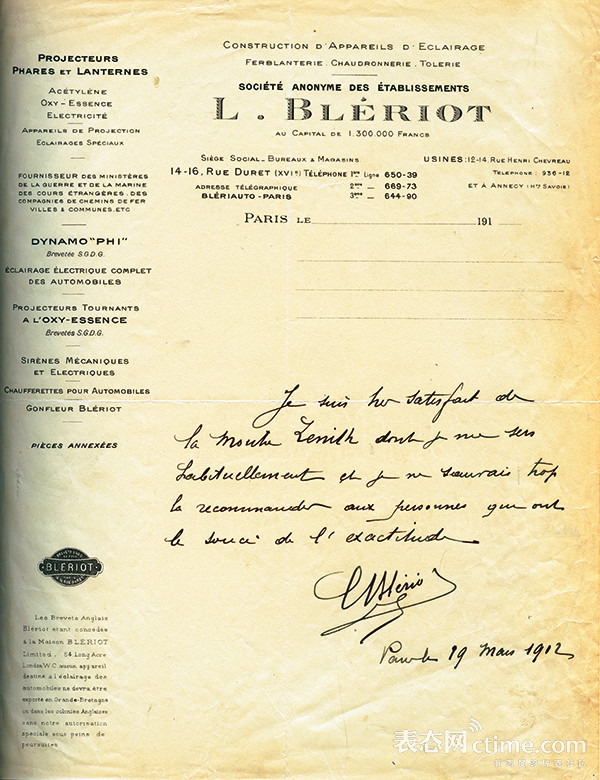 PROJECTEURS
PHARES ET LANTERNES
ACÉTYLÈNE
OXY-ESSENCE
ELECTRICITÉ
APPAREILS DE PROJECTION
ECLAIRAGES SPÉCIAUX
FOURNISSEUR DES MINISTÈRES
DE LA GUERRE ET DE LA MARINE
DES COURS ÉTRANGÈRES, DES
COMPAGNIES DE CHEMINS DE FER
VILLES & COMMUNES, ETC
DYNAMO "PHI"
Brevetée S.G.D.G.
ÉCLAIRAGE ÉLECTRIQUE COMPLET
DES AUTOMOBILES
PROJECTEURS TOURNANTS
A L'OXY-ESSENCE
Brevetés S.G.D.G.
SIRÈNES MÉCANIQUES
ET ELECTRIQUES
CHAUFFERETTES POUR AUTOMOBILES
GONFLEUR BLÉRIOT
PIÈCES ANNEXÉES
BLÉRIOT
Les Brevets Anglais
Blériot étant concédés
à la Maison BLÉRIOT
Limited. 54 Long Acre
Londres W.C. aucun appareil
destiné à l'éclairage des
automobiles ne devra être
exporté en Grande-Bretagne
ou dans les colonies Anglaises
sans notre autorisation
spéciale sous peine de
poursuites
CONSTRUCTION D'APPAREILS D'ECLAIRAGE
FERBLANTERIE. CHAUDRONNERIE. TOLERIE
SOCIÉTÉ ANONYME DES ÉTABLISSEMENTS
L. BLÉRIOT
AU CAPITAL DE 1.300.000 FRANCS
SIÈGE SOCIAL_BUREAUX & MAGASINS
14-16, RUE DURET (XVIe) TÉLÉPHONE 1ère Ligne 650-39
ADRESSE TÉLÉGRAPHIQUE 2ème — 669-73
BLÉRIAUTO-PARIS 3ème — 644-90
USINES: 12-14, RUE HENRI CHEVREAU
TELEPHONE: 936-12
ET À ANNECY (Hte SAVOIE)
PARIS LE 191
Je suis très satisfait de
la montre Zenith dont je me sers
habituellement et je ne saurais trop
la recommander aux personnes qui ont
le souci de l'exactitude
LBlériot
19 Mars 1912
表态网 ctime.com